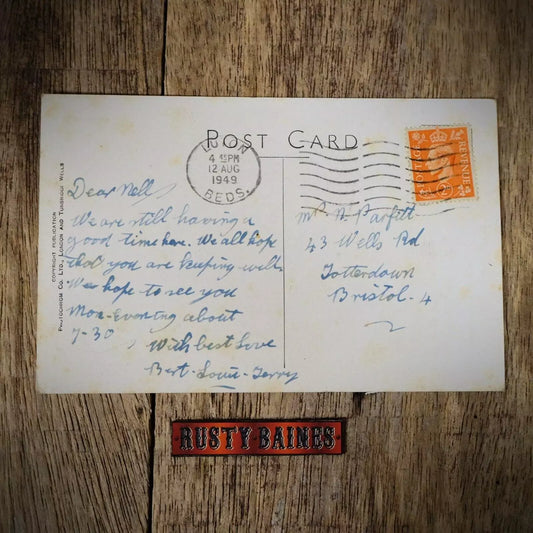 POST CARD
LUTON
4 15PM
12 AUG
1949
BEDS.
POSTAGE
REVENUE
COPYRIGHT PUBLICATION
PHOTOCHROM CO. LTD., LONDON AND TUNBRIDGE WELLS
Dear Nell
We are still having a
good time here. We all hope
that you are keeping well.
We hope to see you
Mon-Evening about
7-30
With best love
Bert-Louie-Terry
N. Parfitt
43 Wells Rd
Totterdown
Bristol-4
RUSTY·BAINES